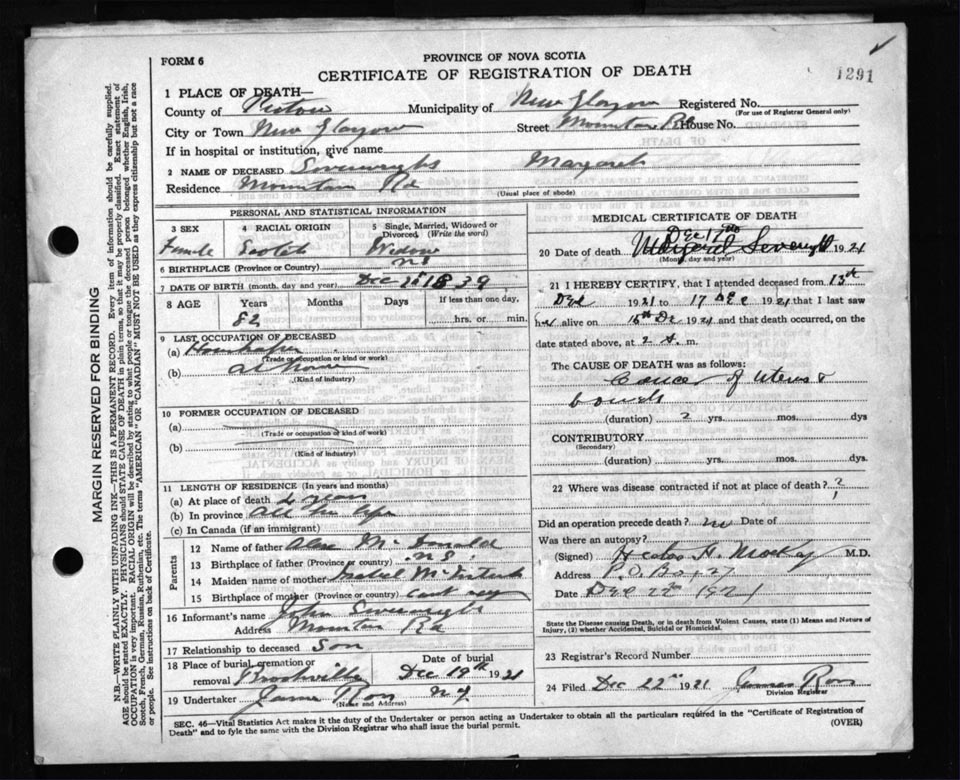 FORM 6
PROVINCE OF NOVA SCOTIA
CERTIFICATE OF REGISTRATION OF DEATH
1291
1 PLACE OF DEATH—
County of Pictou Municipality of New Glasgow Registered No.
(For use of Registrar General only)
City or Town New Glasgow Street Mountain Rd House No.
If in hospital or institution, give name
2 NAME OF DECEASED Margaret
Residence Mountain Rd
(Usual place of abode)
PERSONAL AND STATISTICAL INFORMATION
3 SEX 4 RACIAL ORIGIN 5 Single, Married, Widowed or Divorced (Write the word)
Female Scotch Widow
6 BIRTHPLACE (Province or Country) N S
7 DATE OF BIRTH (month, day and year) Dec 1839
8 AGE Years Months Days If less than one day,
82 hrs. or min.
9 LAST OCCUPATION OF DECEASED
(a)
(Trade or occupation or kind of work)
(b) at home
(Kind of industry)
10 FORMER OCCUPATION OF DECEASED
(a)
(Trade or occupation or kind of work)
(b)
(Kind of industry)
11 LENGTH OF RESIDENCE (In years and months)
(a) At place of death years
(b) In province All her life
(c) In Canada (if an immigrant)
Parents
12 Name of father Alex McDonald
13 Birthplace of father (Province or country) N S
14 Maiden name of mother Isabel
15 Birthplace of mother (Province or country) cant say
16 Informant's name John
Address Mountain Rd
17 Relationship to deceased Son
18 Place of burial, cremation or removal Brookville Date of burial Dec 19th 1921
19 Undertaker James Ross N G
(Name and Address)
MEDICAL CERTIFICATE OF DEATH
Dec 17th
20 Date of death Margaret 1921
(Month, day and year)
21 I HEREBY CERTIFY, that I attended deceased from 13th
Dec 1921 to 17 Dec 1921 that I last saw
her alive on Dec 1921 and that death occurred, on
date stated above, at 2 A. m.
The CAUSE OF DEATH was as follows:
Cancer of Uterus &
bowels
(duration) 2 yrs. mos. dys
CONTRIBUTORY
(Secondary)
(duration) yrs. mos. dys.
22 Where was disease contracted if not at place of death? ?
Did an operation precede death? no Date of
Was there an autopsy?
(Signed) H. Mackay M.D.
Address P.O. Box 27
Date Dec 22nd 1921
State the Disease causing Death, or in death from Violent Causes, state (1) Means and Nature of
Injury, (2) whether Accidental, Suicidal or Homicidal.
23 Registrar's Record Number
24 Filed Dec 22nd 1921 James Ross
Division Registrar
SEC. 46—Vital Statistics Act makes it the duty of the Undertaker or person acting as Undertaker to obtain all the particulars required in the "Certificate of Registration of
Death" and to fyle the same with the Division Registrar who shall issue the burial permit.
(OVER)
MARGIN RESERVED FOR BINDING
N.B.—WRITE PLAINLY WITH UNFADING INK—THIS IS A PERMANENT RECORD. Every item of information should be carefully supplied.
AGE should be stated EXACTLY. PHYSICIANS should STATE CAUSE OF DEATH in plain terms, so that it may be properly classified. Exact statement of
OCCUPATION is very important. RACIAL ORIGIN will be described by stating to what people or tongue the deceased person belonged whether English, Irish,
Scotch, French, German, Russian, Ruthenian, etc. The terms "AMERICAN" OR "CANADIAN" MUST NOT BE USED as they express citizenship but not a race
or people. See instructions on back of Certificate.